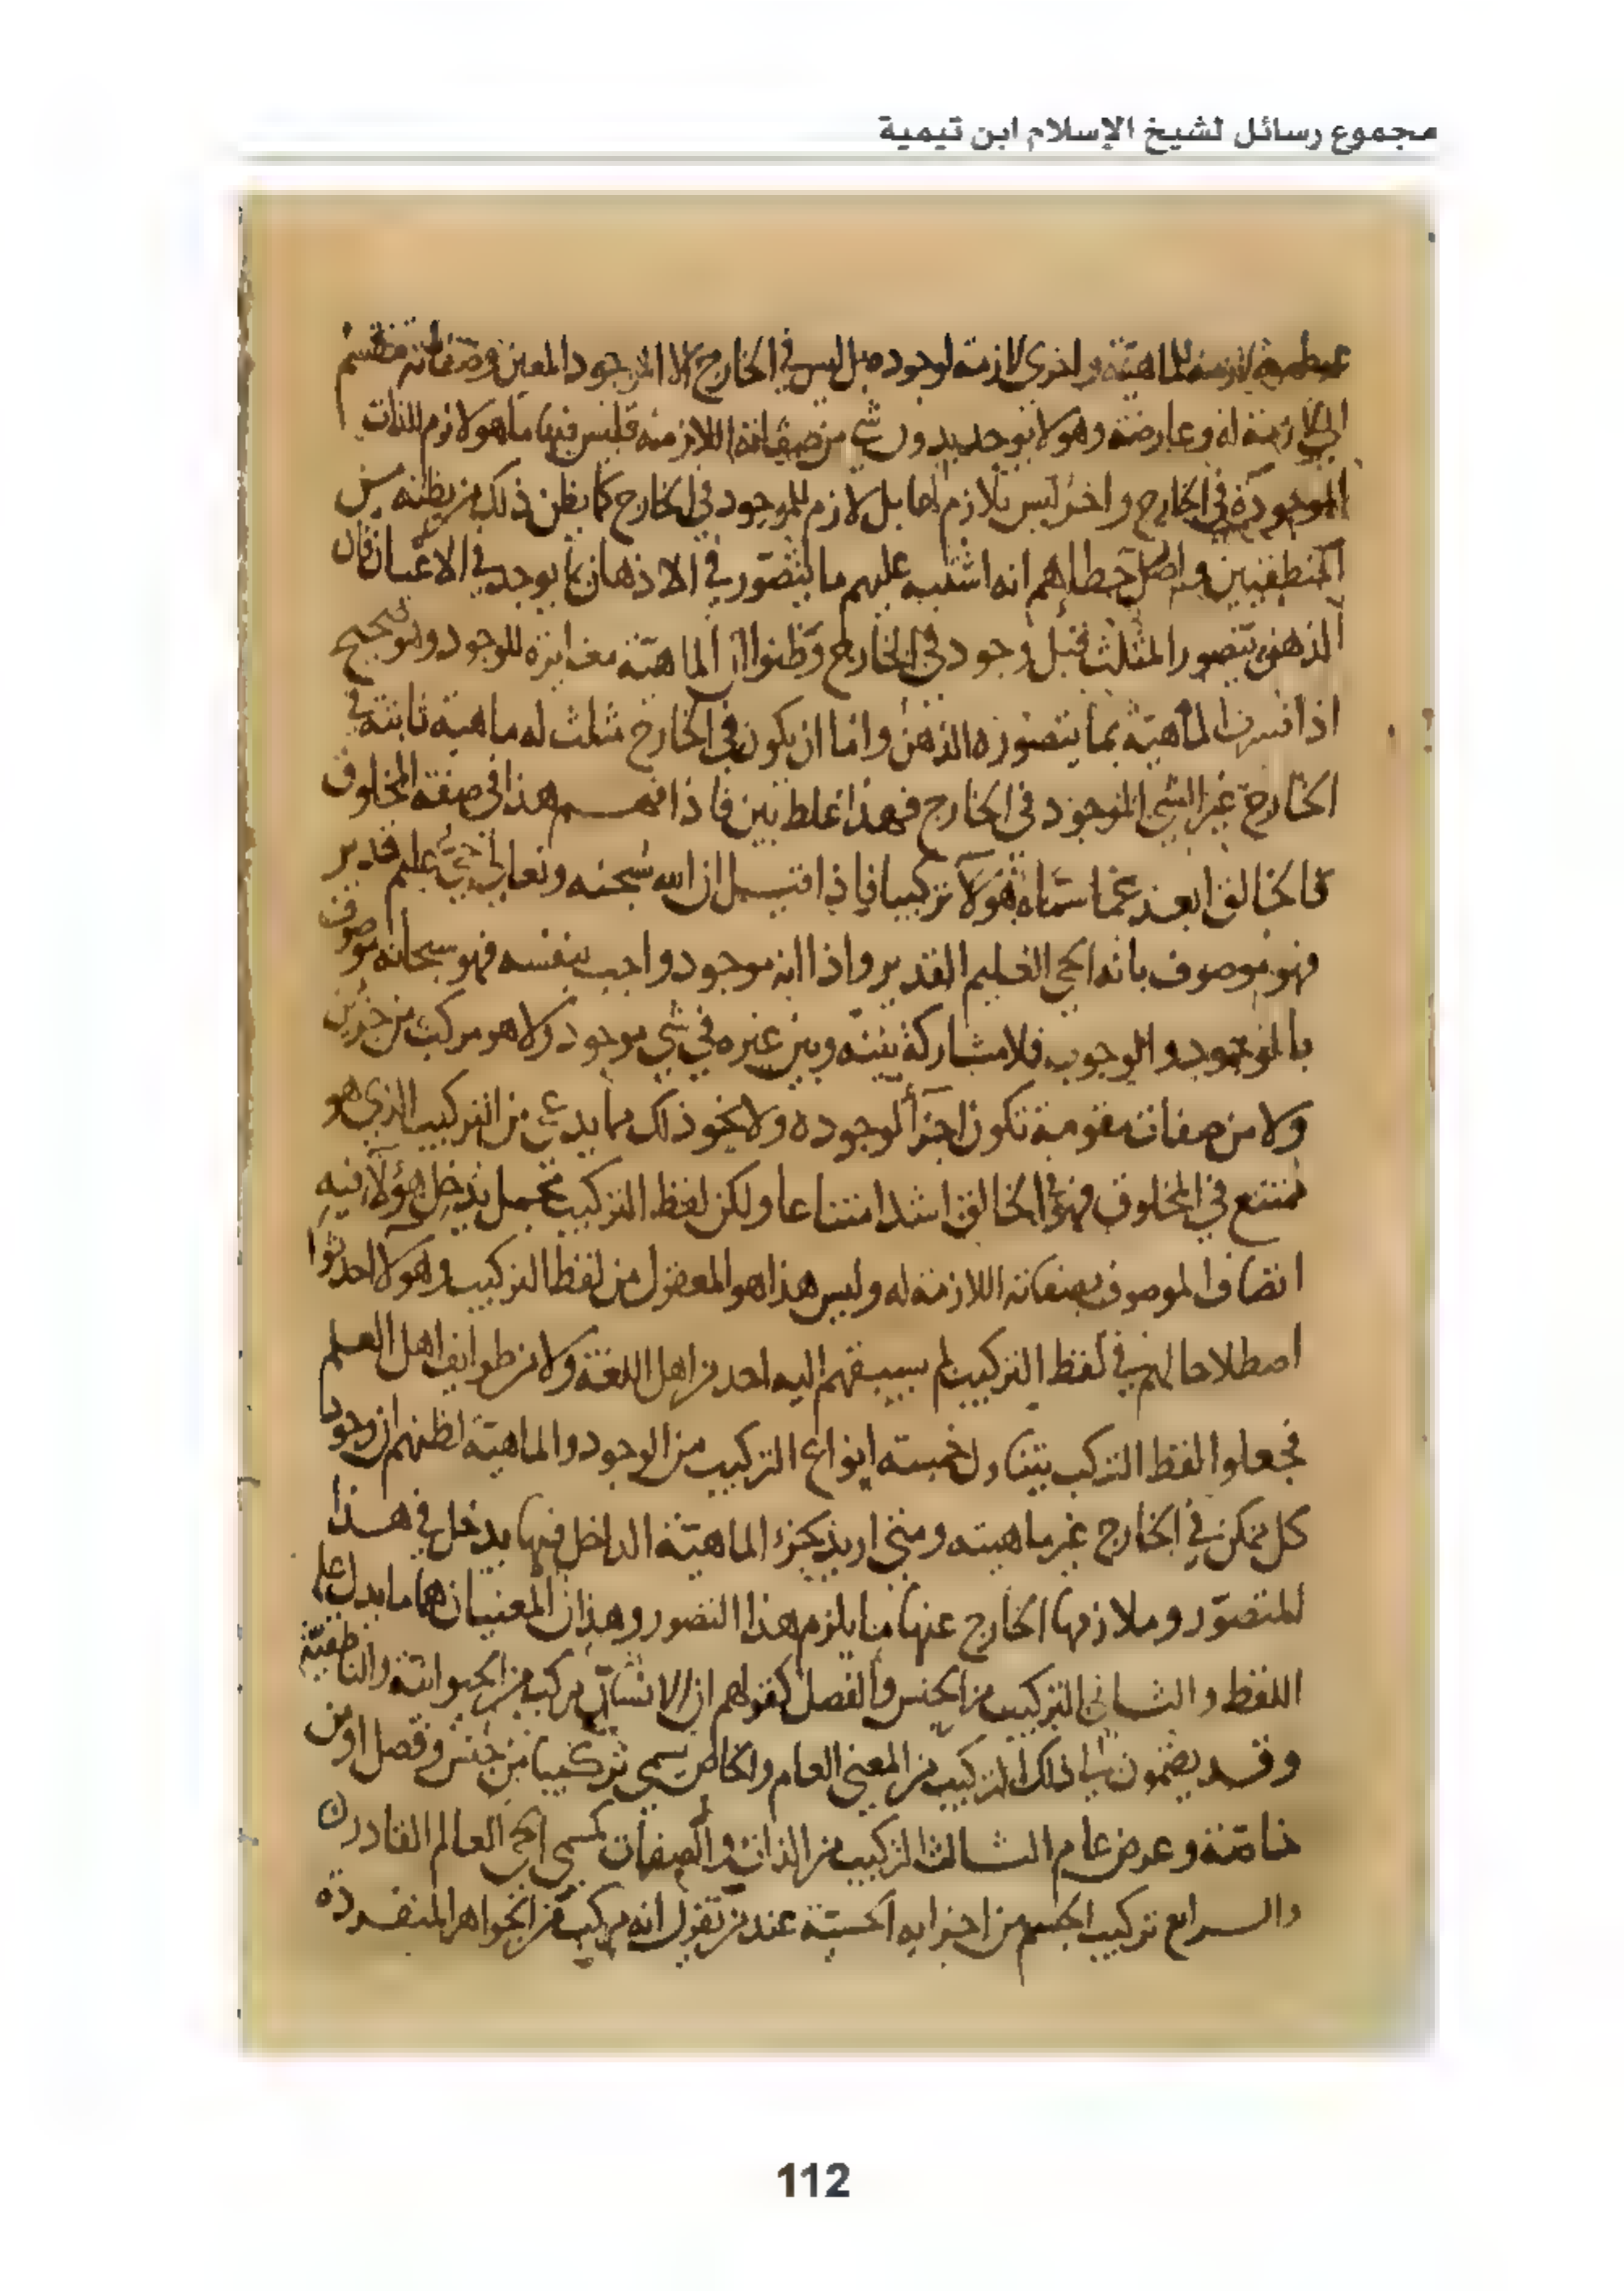 مجموع رسائل لشيخ الإسلام ابن تيمية
لازمة للماهية واخرى لازمة لوجوده بل ليس في الخارج الا الموجود المعين وصفاته تنقسم
الى لازمة له وعارضة وهو لا يوجد بدون شي من صفاته اللازمة فليس فيها ما هو لازم للذات
الموجودة في الخارج واخر ليس بلازم لها بل لازم للموجود في الخارج كما يظن ذلك من يظنه من
المنطقيين واصل خطاهم انه اشتبه عليهم ما يتصور في الاذهان بما يوجد في الاعيان فان
الذهن يتصور المثلث قبل وجوده في الخارج وظنوا ان الماهية مغايرة للوجود وهو صحيح
اذا فسرت الماهية بما يتصوره الذهن واما ان يكون في الخارج مثلث له ماهية ثابتة في
الخارج غير الشي الموجود في الخارج فهذا غلط بين فاذا فهم هذا في صفة المخلوق
فالخالق ابعد عما سماه هولآ تركيبا فاذا قيل ان الله سبحنه وتعالى حي عليم قدير
فهو موصوف بانه الحي العليم القدير واذا انه موجود واجب بنفسه فهو سبحانه موصوف
بالوجود والوجوب فلا مشاركة بينه وبين غيره في شي موجود ولا هو مركب من جزئين
ولا من صفات مقومة تكون اجزآ لوجوده ولا نحو ذلك مما يدعى من التركيب الذي هو
ممتنع في المخلوق فهو في الخالق اشد امتناعا ولكن لفظ التركيب مجمل يدخل هؤلآ فيه
اتصاف الموصوف بصفاته اللازمة له وليس هذا هو المعقول من لفظ التركيب وهولا احدثوا
اصطلاحا لهم في لفظ التركيب لم يسبقهم اليه احد من اهل اللغة ولا من طوايف اهل العلم
فجعلوا لفظ التركيب يتناول خمسة انواع التركيب من الوجود والماهية لظنهم ان وجود
كل ممكن في الخارج غير ماهيته ومتى اريد بجزء الماهية الداخل فيها يدخل في هذا
المتصور وملازمها الخارج عنها ما يلزم هذا التصور وهذان المعنيان هما ما يدل عليه
اللفظ والثاني التركيب من الجنس والفصل كقولهم ان الانسان مركب من الحيوانية والناطقية
وقد يضمون الى ذلك التركيب من المعنى العام والخاص يسمى تركيبا من جنس وفصل او من
خاصة وعرض عام الثالث التركيب من الذات والصفات كمسمى الحي العالم القادر
والرابع تركيب الجسم من اجزايه الحسية عند من يقول انه مركب من الجواهر المنفردة
112